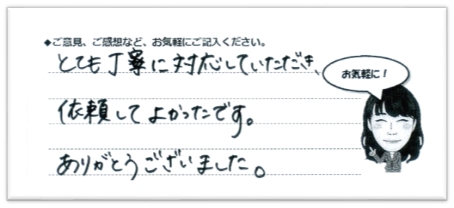 ◆ご意見、ご感想など、お気軽にご記入ください。
とても丁寧に対応していただき、
お気軽に!
依頼してよかったです。
ありがとうございました。